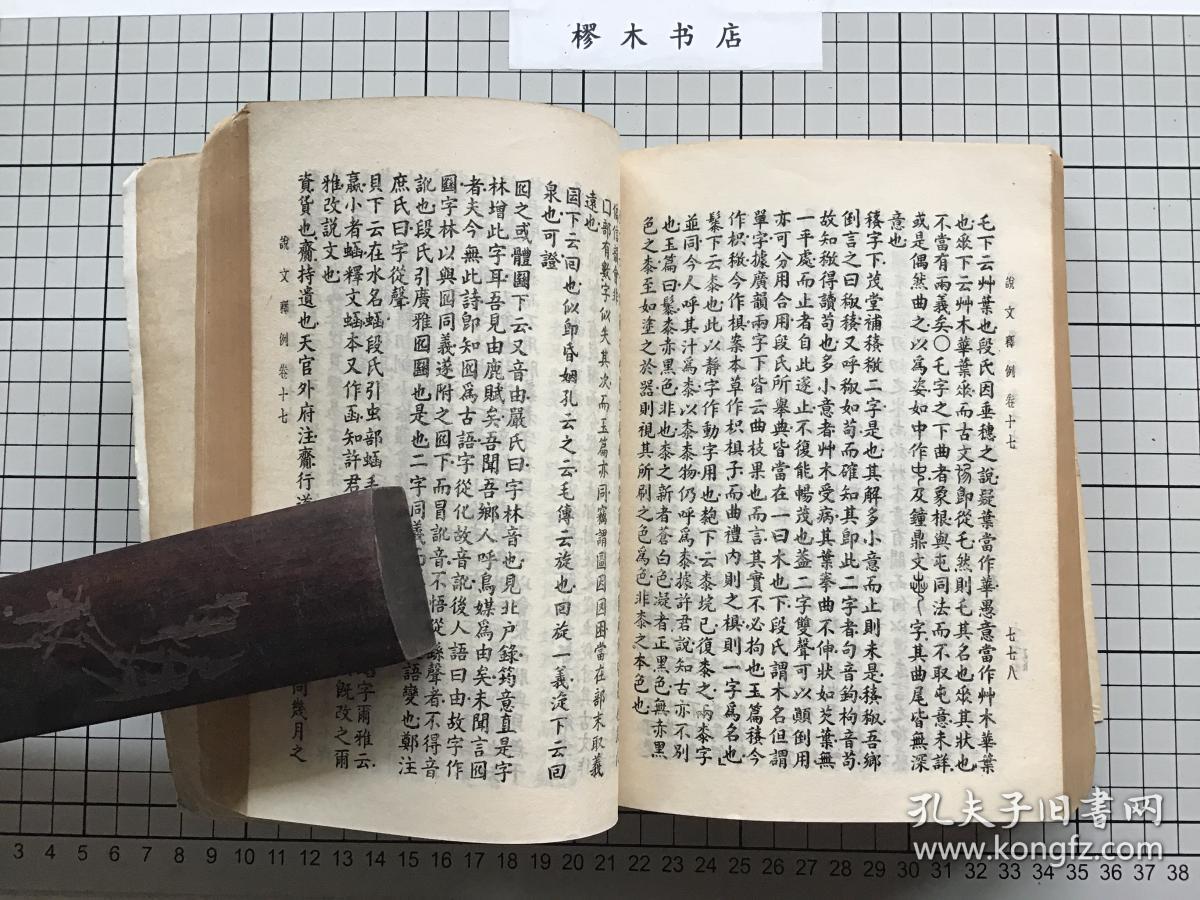 樛木书店
說文釋例 卷十七
七七八
乇下云艸葉也段氏因垂穗之說疑葉當作華愚意當作艸木華葉
也𠂹下云艸木華葉𠂹而古文即從乇然則乇其名也𠂹其狀也
不當有兩義矣〇乇字之下曲者象根與屯同法而不取屯意未詳
或是偶然曲之以爲姿如中作及鐘鼎文字其曲尾皆無深
意也
字下茂堂補二字是也其解多小意而止則未是吾鄉
倒言之曰又呼如苟而確知其即此二字者句音鉤枸音苟
故知得讀苟也多小意者艸木受病其葉拳曲不伸狀如芡葉無
一平處而止者自此遂止不復能暢茂也蓋二字雙聲可以顛倒用
亦可分用合用段氏所舉典皆當在一曰木也下段氏謂木名但謂
單字據廣韻兩字下皆云曲枝果也而言其實不必拘也玉篇今
作枳今作椇案本草作枳椇子而曲禮內則之椇則一字爲名也
髹下云桼也此以靜字作動字用也下云桼垸已復桼之兩桼字
並同今人呼其汁爲桼以桼桼物仍呼爲桼據許君說知古亦不別
也玉篇曰髹桼赤黑色非也桼之新者蒼白色凝者正黑色無赤黑
色之桼至如塗之於器則視其所刷之色爲色非桼之本色也
囗部有數字似失其次而玉篇亦同竊謂圖因囚困當在部末取義
遠也
回下云回也似即昏姻孔云之云毛傳云旋也回旋一義淀下云回
泉也可證
囮之或體圝下云又音由嚴氏曰字林音也見北戶錄筠意直是字
林增此字耳吾見由鹿賦矣吾聞吾鄉人呼鳥媒爲由矣未聞言囮
者夫今無此詩即知囮爲古語字從化故音訛後人語曰由故字作
圝字林以與囮同義遂附之囮下而冒訛音不悟從繇聲者不得音
訛也段氏引廣雅囮圝也是也二字同義語變也鄭注
庶氏曰字從聲
貝下云在水名蜬段氏引虫部蜬字爾雅云
蠃小者蜬釋文蜬本又作函知許君既改之爾
雅改說文也
資貨也齎持遺也天官外府注齎行道問幾月之
說文釋例 卷十七
孔夫子旧書网
www.kongfz.com
3 4 5 6 7 8 9 10 11 12 13 14 15 16 17 18 19 20 21 22 23 24 25 26 27 28 29 30 31 32 33 34 35 36 37 38